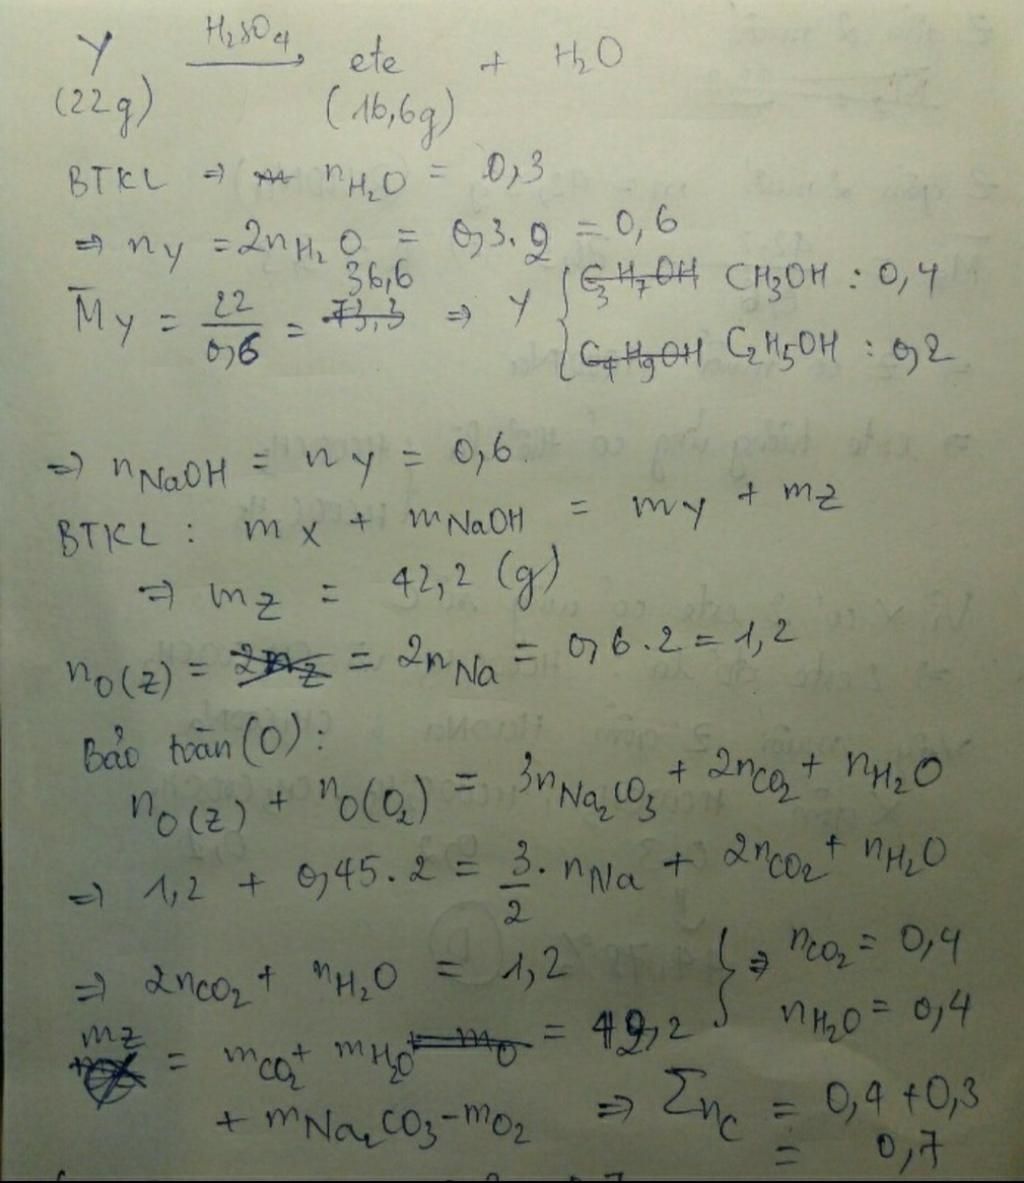 Y H₂SO₄ → ete + H₂O
(22g) (16,6g)
BTKL ⇒ m nH₂O = 0,3
⇒ nY = 2nH₂O = 0,3.2 = 0,6
M̄Y = 22/0,6 = 73,3 36,6 ⇒ Y { C₃H₇OH CH₃OH : 0,4
C₄H₉OH C₂H₅OH : 0,2
⇒ nNaOH = nY = 0,6.
BTKL : mX + mNaOH = mY + mZ
⇒ mZ = 42,2 (g)
nO(Z) = 2nZ = 2nNa = 0,6.2 = 1,2
Bảo toàn(O):
nO(Z) + nO(O₂) = 3nNa₂CO₃ + 2nCO₂ + nH₂O
⇒ 1,2 + 0,45.2 = 3/2. nNa + 2nCO₂ + nH₂O
⇒ 2nCO₂ + nH₂O = 1,2 } ⇒ nCO₂ = 0,4
mZ = mCO₂ + mH₂O mO = 42,2 nH₂O = 0,4
+ mNa₂CO₃ - mO₂ ⇒ ΣnC = 0,4 + 0,3
= 0,7